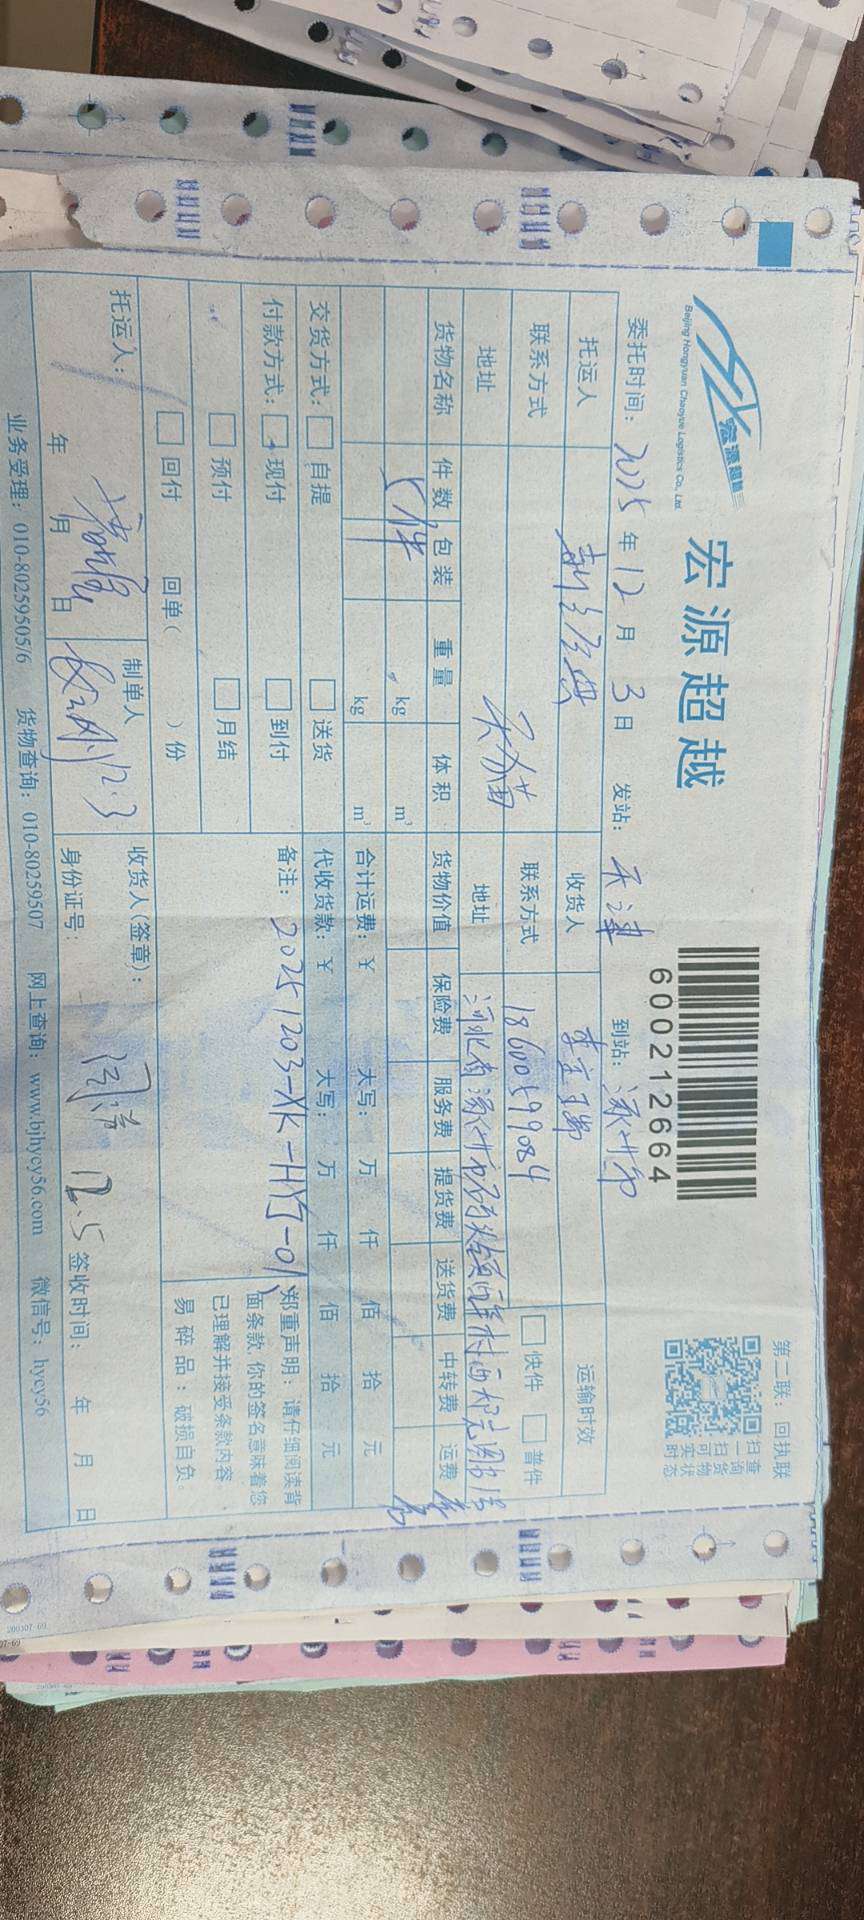 宏源超越
Beijing Hongyuan Chaoyue Logistics Co., Ltd.
宏源超越
600212664
第二联：回执联
扫一扫可实时
查询货物状态
委托时间：2025年12月3日 发站：天津 到站：涿州市
托运人 新经典 收货人 运输时效
联系方式 联系方式 18600599084 快件 普件
地址 地址 河北省涿州市
货物名称 件数 包装 重量 体积 货物价值 保险费 服务费 提货费 送货费 中转费 运费
5件 kg m³
kg m³ 合计运费：¥ 大写： 万 仟 佰 拾 元
交货方式： 自提 送货 代收货款：¥ 大写： 万 仟 佰 拾 元
付款方式： 现付 到付 备注：20251203-XK-HYJ-01
预付 月结
回付 回单（ ）份
郑重声明：请仔细阅读背
面条款，你的签名意味着您
已理解并接受条款内容
易碎品：破损自负。
托运人： 制单人 12.3 收货人(签章)：
年 月 日 身份证号： 12.5 签收时间： 年 月 日
业务受理：010-80259505/6 货物查询：010-80259507 网上查询：www.bjhycy56.com 微信号：hycy56